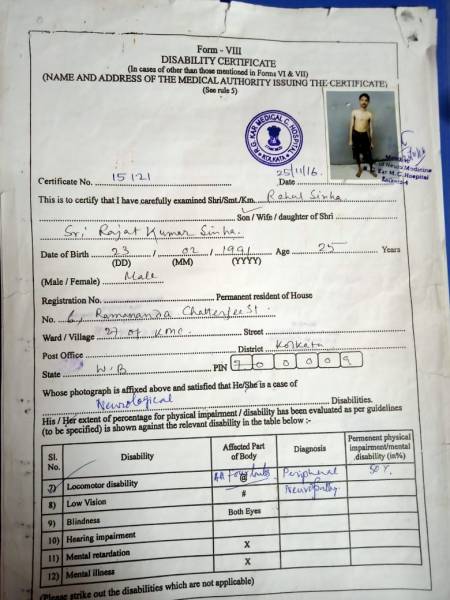 Form - VIII
DISABILITY CERTIFICATE
(In cases of other than those mentioned in Forms VI & VII)
(NAME AND ADDRESS OF THE MEDICAL AUTHORITY ISSUING THE CERTIFICATE)
(See rule 5)
R.G. KAR MEDICAL C. HOSPITAL
KOLKATA
Hospital
Certificate No. 15121 Date 25/11/16
This is to certify that I have carefully examined Shri/Smt/Km. Rahul Sinha
Son / Wife / daughter of Shri
Sri Rajat Kumar Sinha.
Date of Birth 23 / 02 / 1991 Age 25 Years
(DD) (MM) (YYYY)
(Male / Female) Male
Registration No. Permanent resident of House
No. 6, Ramananda Chatterjee St.
Ward / Village 27 of KMC. Street
Post Office District Kolkata
State W.B PIN 700009
Whose photograph is affixed above and satisfied that He/She is a case of
Neurological Disabilities.
His / Her extent of percentage for physical impairment / disability has been evaluated as per guidelines
(to be specified) is shown against the relevant disability in the table below :-
Sl. No. Disability Affected Part of Body Diagnosis Permenent physical impairment/mental disability (in%)
7) Locomotor disability All four limbs @ Peripheral Neuropathy 50%
8) Low Vision #
9) Blindness Both Eyes
10) Hearing impairment
11) Mental retardation X
12) Mental illness X
(Please strike out the disabilities which are not applicable)